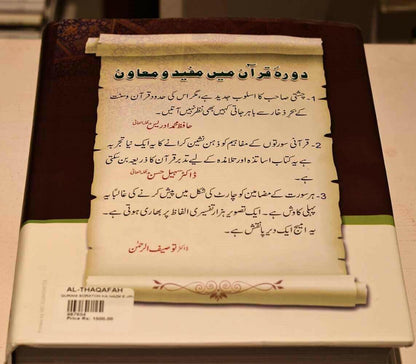 دورۂ قرآن میں مفید و معاون
1- چشتی صاحب کا اسلوب جدید ہے، مگر اس کی حدود قرآن و سنت
کے بحر ذخار سے باہر جاتی کہیں بھی نظر نہیں آتیں۔
حافظ محمد ادریس
2- قرآنی سورتوں کے مفاہیم کو ذہن نشین کرانے کا یہ ایک نیا تجربہ
ہے یہ کتاب اساتذہ اور تلامذہ کے لیے تدبر قرآن کا ذریعہ بن سکتی
ہے۔ ڈاکٹر سہیل حسن
3- ہر سورت کے مضامین کو چارٹ کی شکل میں پیش کرنے کی غالبًا یہ
پہلی کاوش ہے۔ ایک تصویر ہزار تفسیری الفاظ پر بھاری ہوتی ہے۔
یہ امیج ایک دیرپا نقش ہے۔
ڈاکٹر توصیف الرحمٰن
AL-THAQAFAH
QURANI SORATON KA NAZM E JALI
997604
Price Rs: 1500.00